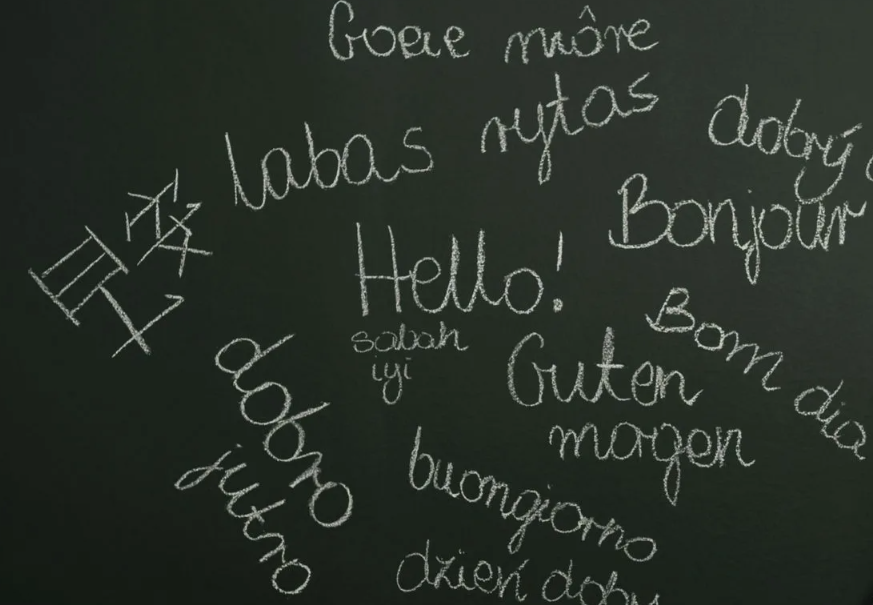 Goeie môre
labas rytas
dobrý
早安
Bonjour
Hello!
sabah
iyi
Bom dia
Guten
morgen
dobro
jutro
buongiorno
dzień doby